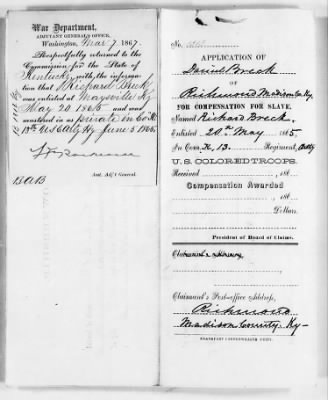 War Department,
ADJUTANT GENERAL'S OFFICE,
Washington, Mar 7, 1867.
Respectfully returned to the
Commission for the State of
Kentucky, with the informa-
tion that Richard Breck
was enlisted at Maysville Ky
May 20 1865 and was
mustered in as private in Co "K"
13th US C Arty Hy June 5 1865.
Asst. Adj't General.
BAB
No.
APPLICATION OF
Daniel Breck
OF
Richmond Madison Co. Ky
FOR COMPENSATION FOR SLAVE,
Named Richard Breck.
Enlisted 20th May 1865
In Com. K, 13. Regiment, Arty
U. S. COLORED TROOPS.
Received 186
Compensation Awarded
186
Dollars.
President of Board of Claims.
Claimant's Attorney,
Claimant's Post-office Address,
Richmond
Madison County Ky
FRANKFORT COMMONWEALTH PRINT.